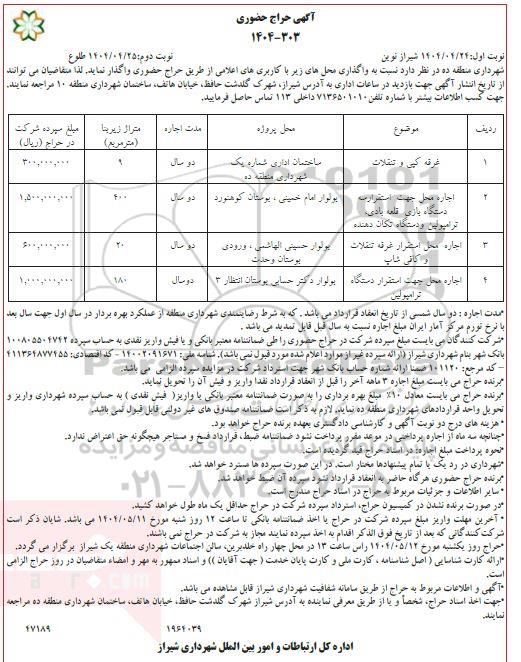 آگهی حراج حضوری
۱۴۰۴-۳۰۳
نوبت اول:۱۴۰۴/۰۴/۲۴ شیراز نوین
نوبت دوم:۱۴۰۴/۰۴/۲۵ طلوع
شهرداری منطقه ده در نظر دارد نسبت به واگذاری محل های زیر با کاربری های اعلامی از طریق حراج حضوری واگذار نماید. لذا متقاضیان می توانند
از تاریخ انتشار آگهی جهت بازدید در ساعات اداری به آدرس شیراز، شهرک گلدشت حافظ، خیابان هاتف، ساختمان شهرداری منطقه ۱۰ مراجعه نمایند.
جهت کسب اطلاعات بیشتر با شماره تلفن ۷۱۳۶۵۰۱۰۱۰ داخلی ۱۱۳ تماس حاصل فرمایید.
ردیف موضوع محل پروژه مدت اجاره متراژ زیربنا (مترمربع) مبلغ سپرده شرکت در حراج (ریال)
۱ غرفه کپی و تنقلات ساختمان اداری شماره یک شهرداری منطقه ده دو سال ۹ ۳۰۰,۰۰۰,۰۰۰
۲ اجاره محل جهت استقرارسه دستگاه بازی قلعه بادی، ترامپولین ودستگاه تکان دهنده بولوار امام خمینی ، بوستان کوهنورد دو سال ۴۰۰ ۱,۵۰۰,۰۰۰,۰۰۰
۳ اجاره محل استقرار غرفه تنقلات و کافی شاپ بولوار حسینی الهاشمی ، ورودی بوستان وحدت دو سال ۲۰ ۶۰۰,۰۰۰,۰۰۰
۴ اجاره محل جهت استقرار دستگاه ترامپولین بولوار دکتر حسابی بوستان انتظار ۳ دوسال ۱۸۰ ۱,۰۰۰,۰۰۰,۰۰۰
*مدت اجاره : دو سال شمسی از تاریخ انعقاد قرارداد می باشد . که به شرط رضایتمندی شهرداری منطقه از عملکرد بهره بردار در سال اول جهت سال بعد
با نرخ تورم مرکز آمار ایران مبلغ اجاره نسبت به سال قبل قابل تمدید می باشد .
*شرکت کنندگان می بایست مبلغ سپرده شرکت در حراج حضوری را طی ضمانتنامه معتبر بانکی و یا فیش واریز نقدی به حساب سپرده ۱۰۰۸۰۵۵۰۴۷۴۲
بانک شهر بنام شهرداری شیراز (ارائه سپرده غیر از موارد اعلام شده مورد قبول نمی باشد). شناسه ملی: ۱۴۰۰۲۰۹۱۶۷۱ - کد اقتصادی: ۴۱۱۳۶۴۸۷۷۴۵۵
– کد مرجع: ۱۰۱۱۲۰ ضمنا ارائه شماره حساب بانک شهر جهت استرداد شرکت در مزایده سپرده الزامی می باشد.
*برنده حراج می بایست مبلغ اجاره ۳ ماهه آخر را قبل از انعقاد قرارداد نقدا واریز و فیش آن را تحویل نماید.
*برنده حراج می بایست معادل ۱۰٪ مبلغ بهره برداری را به صورت ضمانتنامه معتبر بانکی یا واریز( فیش نقدی ) به حساب سپرده شهرداری واریز و
تحویل واحد قراردادهای شهرداری منطقه ده نماید. لازم به ذکر است ضمانتنامه صندوق های غیر دولتی قابل قبول نمی باشد.
* هزینه های درج دو نوبت آگهی و کارشناسی دادگستری بعهده برنده حراج خواهد بود.
*چنانچه سه ماه از اجاره پرداختی در موعد مقرر پرداخت نشود ضمانتنامه ضبط، قرارداد فسخ و مستاجر هیچگونه حق اعتراض ندارد.
*نحوه پرداخت مبلغ اجاره: در اسناد حراج قید گردیده است.
*شهرداری در رد یک یا تمام پیشنهادها مختار است. در این صورت سپرده ها مسترد خواهد شد.
*برنده حراج حضوری هرگاه حاضر به انعقاد قرارداد نشود سپرده آن ضبط خواهد شد.
* سایر اطلاعات و جزئیات مربوط به حراج در اسناد حراج مندرج است.
*در صورت برنده نشدن در کمیسیون حراج، استرداد سپرده شرکت در حراج حداقل یک ماه طول خواهد کشید.
* آخرین مهلت واریز مبلغ سپرده شرکت در حراج یا اخذ ضمانتنامه بانکی تا ساعت ۱۲ روز شنبه مورخ ۱۴۰۴/۰۵/۱۱ می باشد. شایان ذکر است
شرکت کنندگانی که بعد از تاریخ فوق الذکر اقدام به اخذ سپرده نمایند مجاز به شرکت در حراج نمی باشند.
*حراج روز یکشنبه مورخ ۱۴۰۴/۰۵/۱۲ راس ساعت ۱۳ در محل چهار راه خلدبرین، سالن اجتماعات شهرداری منطقه یک شیراز برگزار می گردد.
*ارائه کارت شناسایی ( اصل شناسنامه ، کارت ملی و کارت پایان خدمت ( جهت آقایان )) و اسناد ممهور به مهر و امضاء متقاضیان در روز حراج الزامی
است.
*آگهی و اطلاعات مربوط به حراج از طریق سامانه شفافیت شهرداری شیراز قابل مشاهده می باشد.
*جهت اخذ اسناد حراج، شخصاً و یا از طریق معرفی نماینده به آدرس شیراز شهرک گلدشت حافظ، خیابان هاتف، ساختمان شهرداری منطقه ده مراجعه
نمایند.
۱۹۶۴۰۳۹
۴۷۱۸۹
اداره کل ارتباطات و امور بین الملل شهرداری شیراز
۰۲۱-۸۸۳۴۹۶۷۰